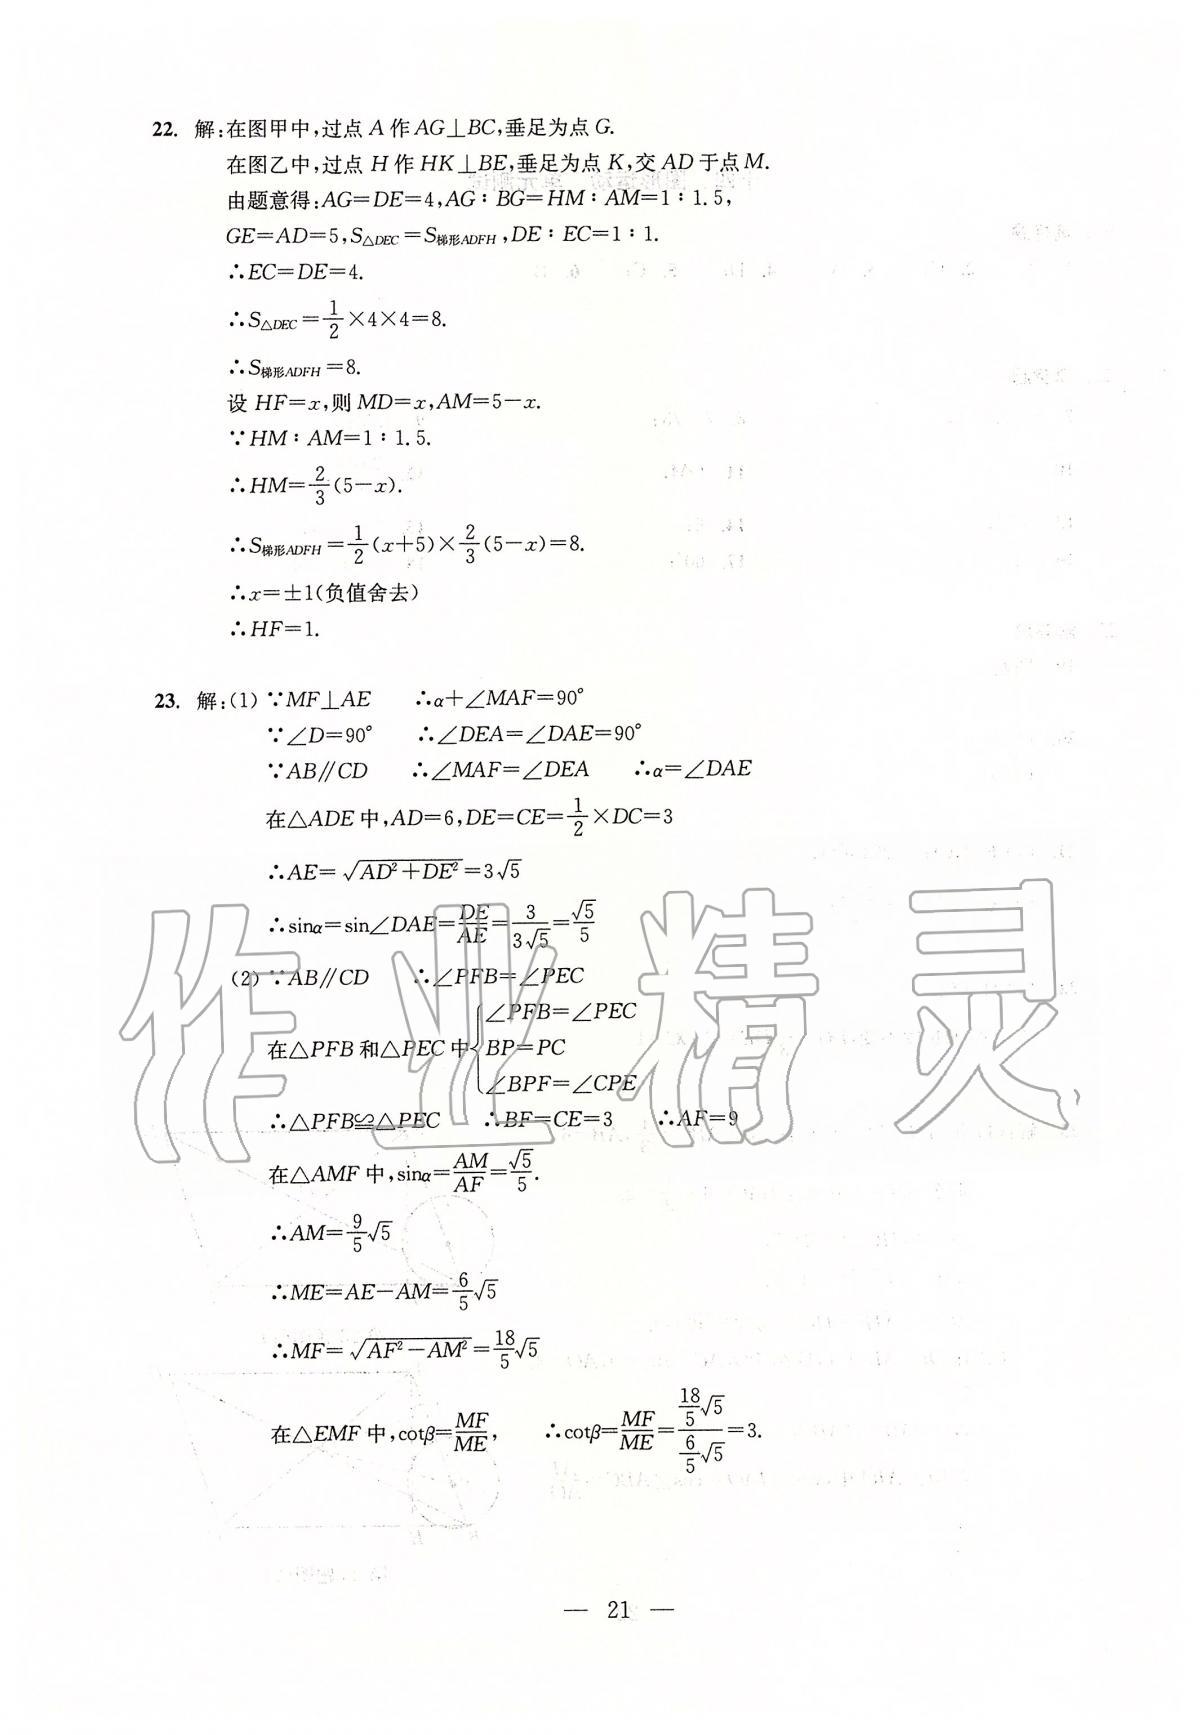 22. 解:在图甲中,过点 A 作 AG⊥BC,垂足为点 G.
在图乙中,过点 H 作 HK⊥BE,垂足为点 K,交 AD 于点 M.
由题意得:AG=DE=4,AG∶BG=HM∶AM=1∶1.5,
GE=AD=5,S△DEC=S梯形ADFH,DE∶EC=1∶1.
∴EC=DE=4.
∴S△DEC=1/2×4×4=8.
∴S梯形ADFH=8.
设 HF=x,则 MD=x,AM=5-x.
∵HM∶AM=1∶1.5.
∴HM=2/3(5-x).
∴S梯形ADFH=1/2(x+5)×2/3(5-x)=8.
∴x=±1(负值舍去)
∴HF=1.
23. 解:(1) ∵MF⊥AE ∴α+∠MAF=90°
∵∠D=90° ∴∠DEA=∠DAE=90°
∵AB∥CD ∴∠MAF=∠DEA ∴α=∠DAE
在△ADE 中,AD=6,DE=CE=1/2×DC=3
∴AE=√(AD²+DE²)=3√5
∴sinα=sin∠DAE=DE/AE=3/(3√5)=√5/5
(2) ∵AB∥CD ∴∠PFB=∠PEC
在△PFB 和△PEC 中{∠PFB=∠PEC
BP=PC
∠BPF=∠CPE
∴△PFB≌△PEC ∴BF=CE=3 ∴AF=9
在△AMF 中,sinα=AM/AF=√5/5.
∴AM=9/5√5
∴ME=AE-AM=6/5√5
∴MF=√(AF²-AM²)=18/5√5
在△EMF 中,cotβ=MF/ME, ∴cotβ=MF/ME=(18/5√5)/(6/5√5)=3.
作业精灵
— 21 —